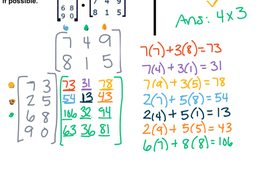 if possible.
6 8
9 0
7 4 9
8 1 5
Ans: 4 x 3
7 4 9
8 1 5
7 3
2 5
6 8
9 0
73 31 78
54 13 43
106 32 94
63 36 81
7(7)+3(8)=73
7(4)+3(1)=31
7(9)+3(5)=78
2(7)+5(8)=54
2(4)+5(1)=13
2(9)+5(5)=43
6(7)+8(8)=106